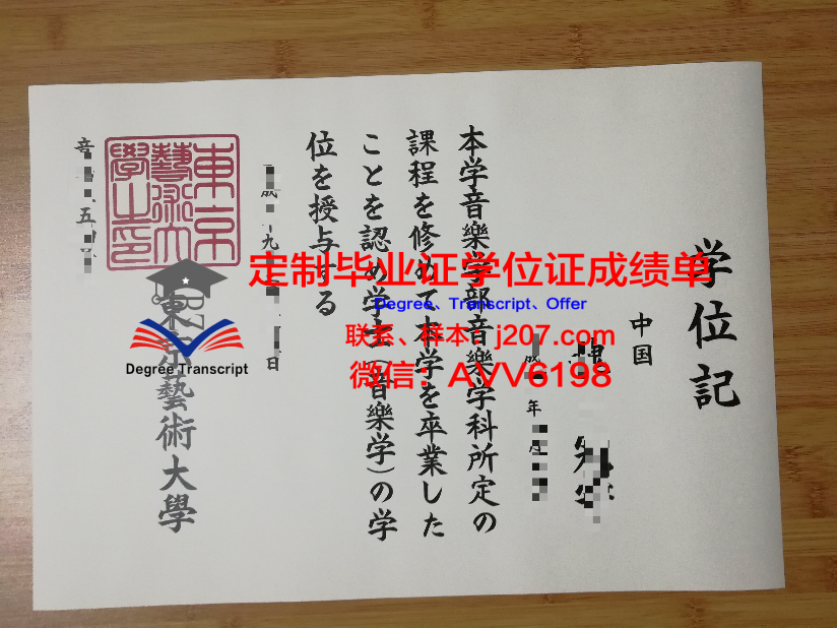 学位記
中国
年
本学音樂学部音樂学科所定の
課程を修めて本学を卒業した
ことを認め学士（音樂学）の学
位を授与する
九
日
東京藝術大學
東京
藝術大
學之印
音
五
定制毕业证学位证成绩单
Degree、Transcript、Offer
联系、样本：j207.com
微信：AVV6198
Degree Transcript